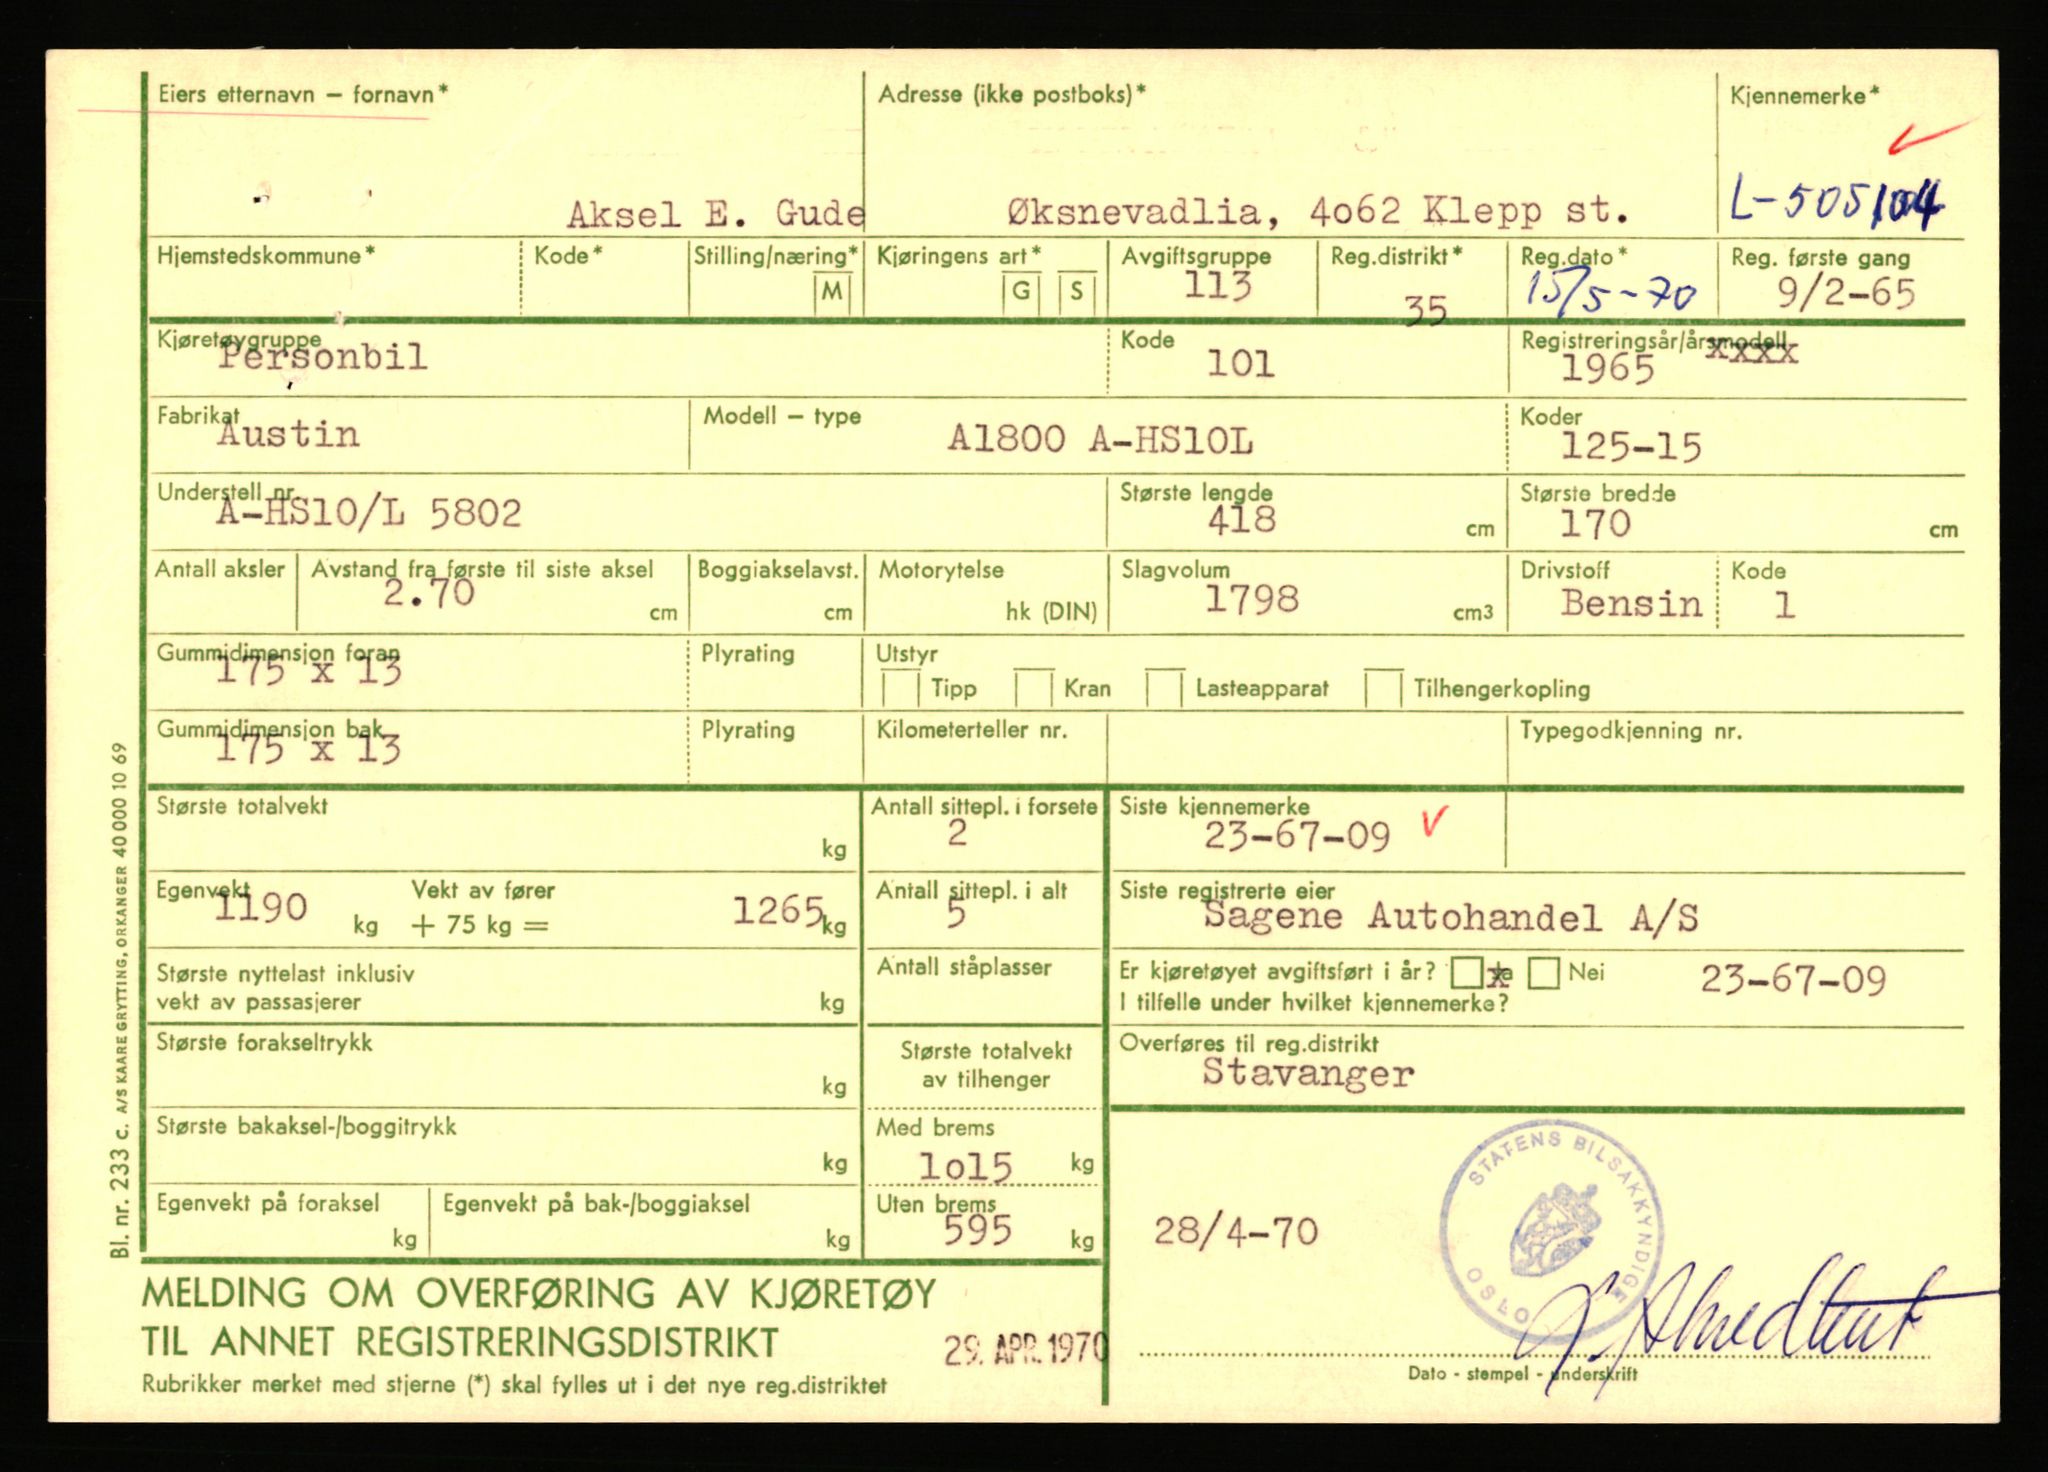 Eiers etternavn – fornavn* Adresse (ikke postboks)* Kjennemerke*
Aksel E. Gude Øksnevadlia, 4o62 Klepp st.
Hjemstedskommune* Kode* Stilling/næring* M Kjøringens art* G S Avgiftsgruppe 113 Reg.distrikt* 35 Reg.dato* 15/5-70 Reg. første gang 9/2-65
Kjøretøygruppe Personbil Kode 101 Registreringsår/årsmodell xxxx 1965
Fabrikat Austin Modell – type A1800 A-HS10L Koder 125-15
Understell nr. A-HS10/L 5802 Største lengde 418 cm Største bredde 170 cm
Antall aksler Avstand fra første til siste aksel 2.70 cm Boggiakselavst. cm Motorytelse hk (DIN) Slagvolum 1798 cm3 Drivstoff Bensin Kode 1
Gummidimensjon foran 175 x 13 Plyrating Utstyr Tipp Kran Lasteapparat Tilhengerkopling
Gummidimensjon bak 175 x 13 Plyrating Kilometerteller nr. Typegodkjenning nr.
Største totalvekt kg Antall sittepl. i forsete 2 Siste kjennemerke 23-67-09
Egenvekt 1190 kg Vekt av fører + 75 kg = 1265 kg Antall sittepl. i alt 5 Siste registrerte eier Sagene Autohandel A/S
Største nyttelast inklusiv vekt av passasjerer kg Antall ståplasser Er kjøretøyet avgiftsført i år? x Ja Nei 23-67-09
I tilfelle under hvilket kjennemerke?
Største forakseltrykk kg Største totalvekt av tilhenger Overføres til reg.distrikt Stavanger
Største bakaksel-/boggitrykk kg Med brems 1o15 kg
Egenvekt på foraksel kg Egenvekt på bak-/boggiaksel kg Uten brems 595 kg
28/4-70
STATENS BILSAKKYNDIGE OSLO
MELDING OM OVERFØRING AV KJØRETØY
TIL ANNET REGISTRERINGSDISTRIKT 29. APR. 1970
Rubrikker merket med stjerne (*) skal fylles ut i det nye reg.distriktet
Dato - stempel - underskrift
Bl. nr. 233 c. A/S KAARE GRYTTING, ORKANGER 40 000 10 69